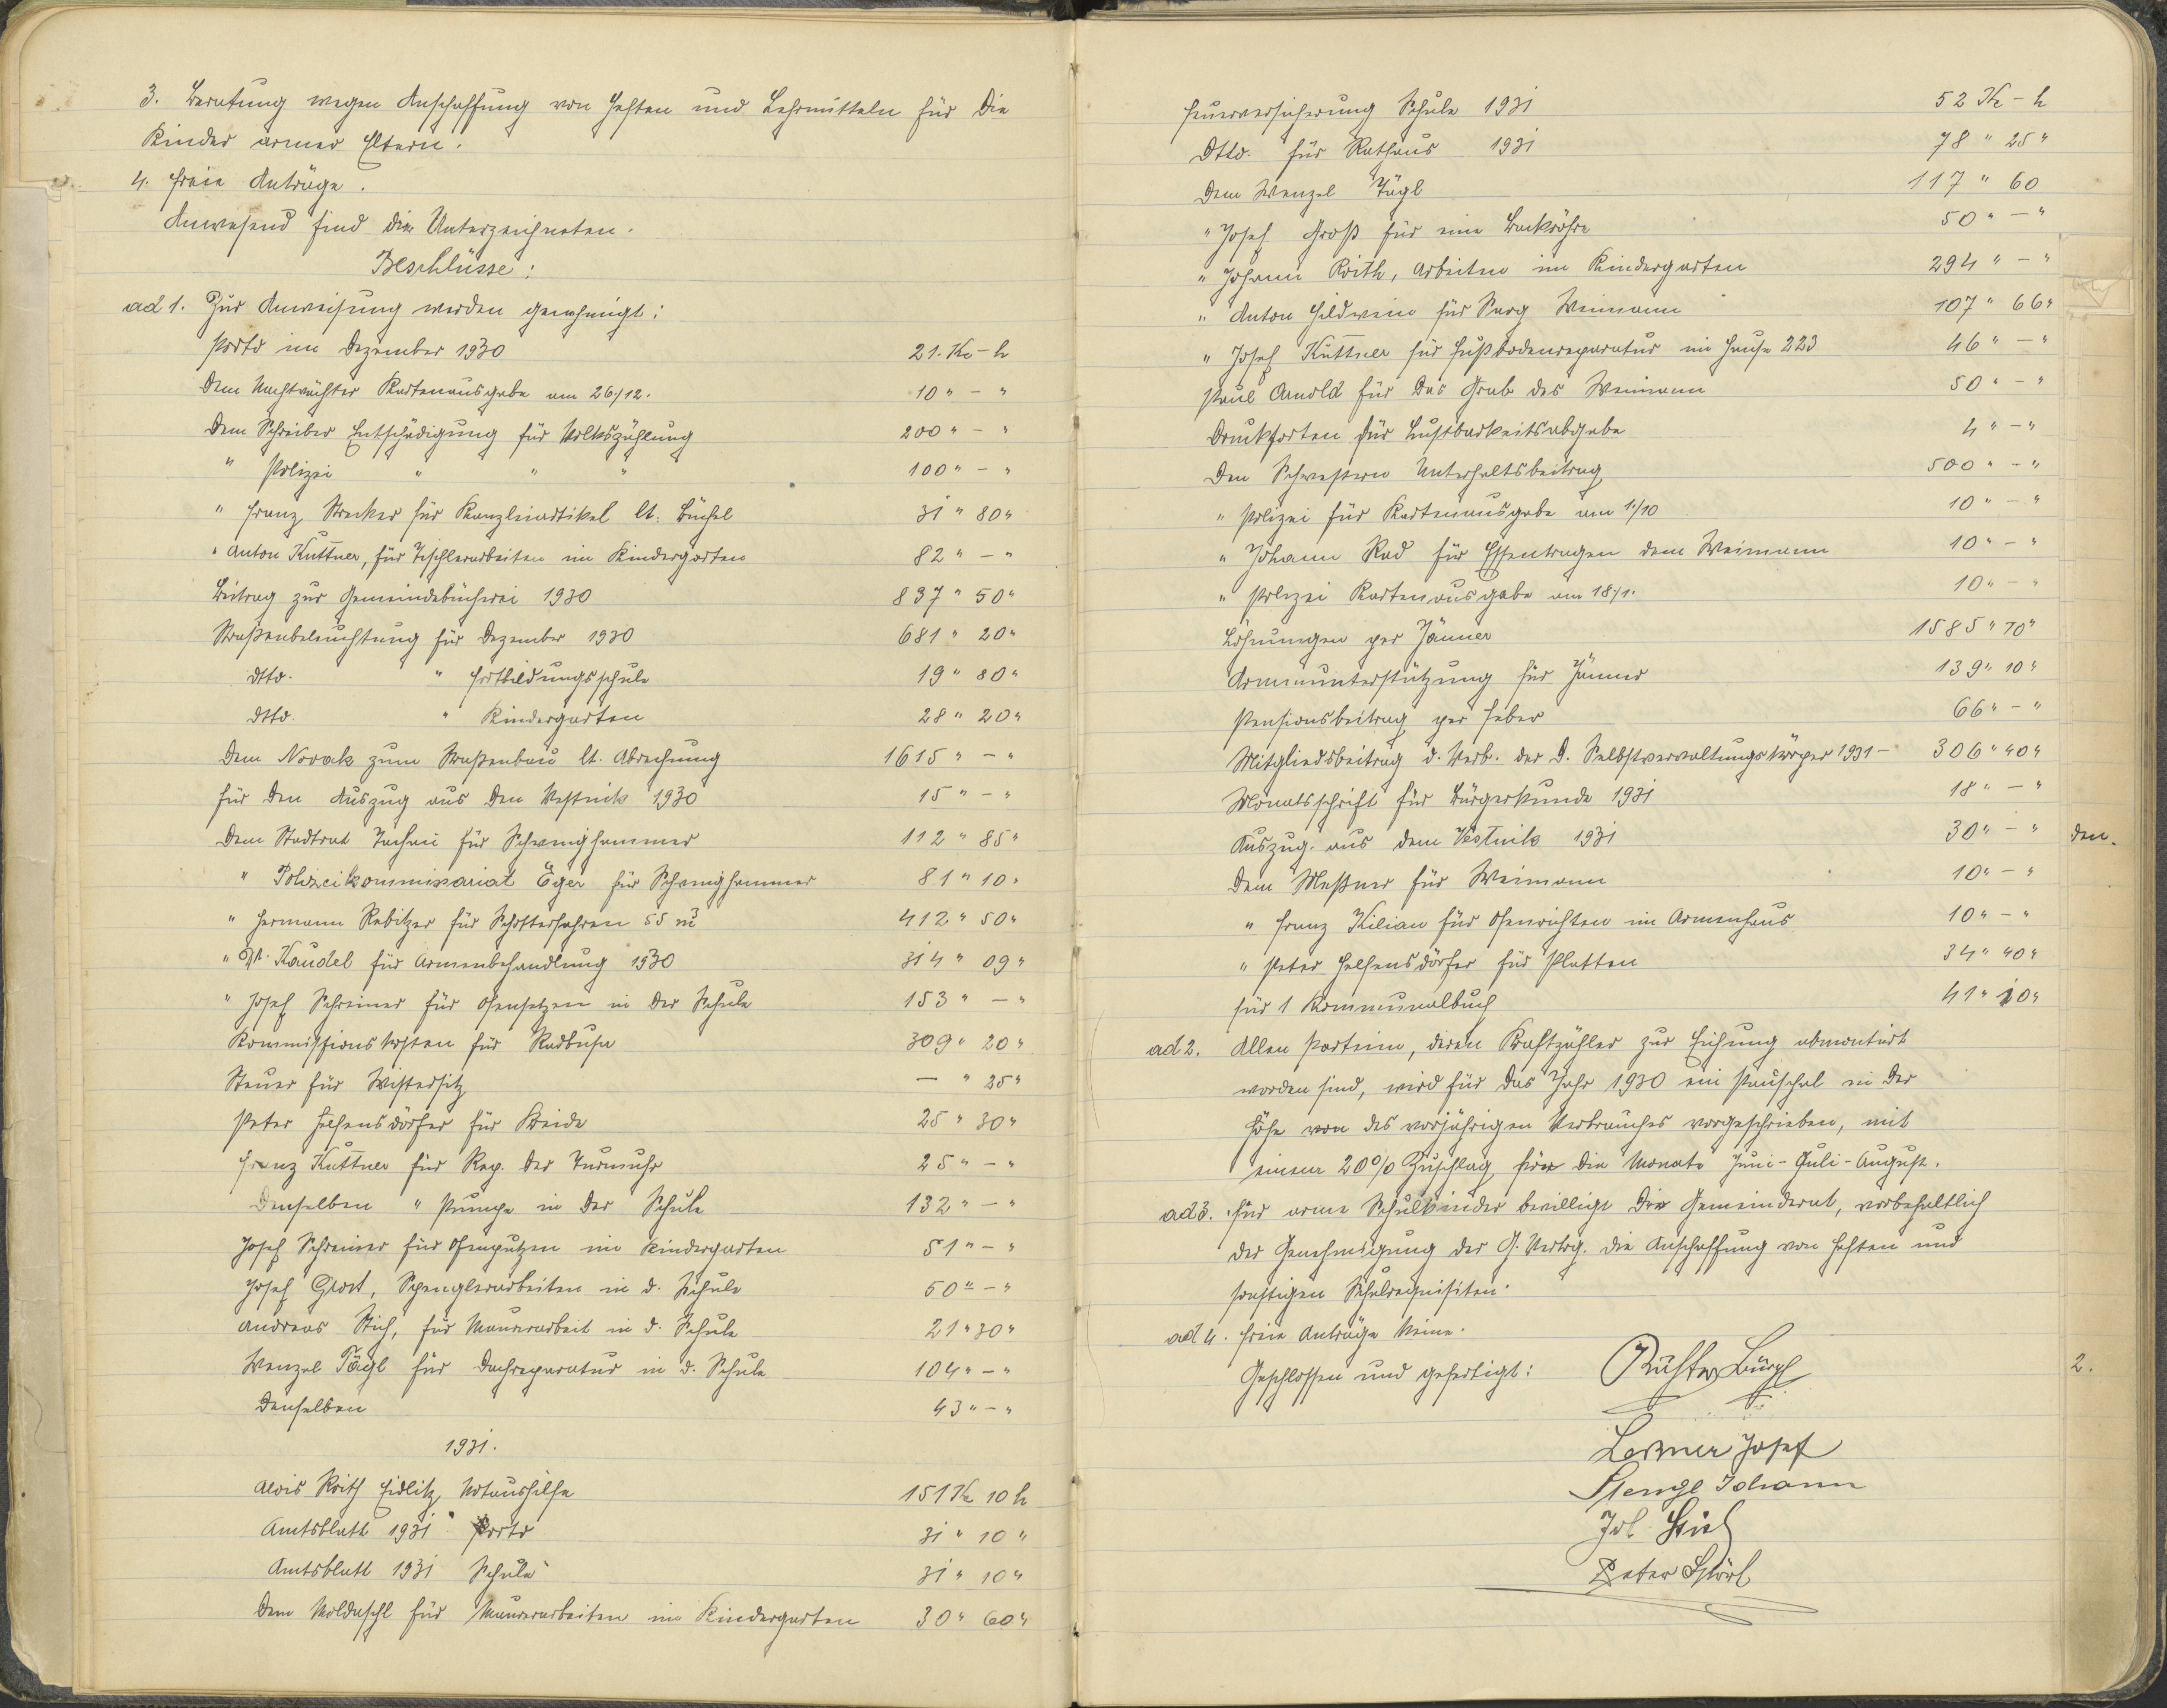 3. Beratung wegen Anschaffung von Heften und Lehrmitteln für die
Kinder armer Eltern.
4. Freie Anträge.
Anwesend sind die Unterzeichneten.
Beschlüsse:
ad 1. Zur Anweisung werden genehmigt:
Porto im Dezember 1930 21. Kc - h
Dem Nachtwächter Kartenausgabe am 26/12. 10 " - "
Dem Schreiber Entschädigung für Volkszählung 200 " - "
" Polizei " " " 100 " - "
" Franz Strecker für Kanzleiartikel lt. Büchel 31 " 80 "
" Anton Kuttner, für Tischlerarbeiten im Kindergarten 82 " - "
Beitrag zur Gemeindebücherei 1930 837 " 50 "
Straßenbeleuchtung für Dezember 1930 681 " 20 "
dtto. " Fortbildungsschule 19 " 80 "
dtto. " Kindergarten 28 " 20 "
Dem Novak zum Straßenbau lt. Abrechnung 1615 " - "
für den Auszug aus den Vestnik 1930 15 " - "
Dem Stadtrat Tachau für Schwanghammer 112 " 85 "
" Polizeikommissariat Eger für Schwanghammer 81 " 10 "
" Hermann Rebitzer für Schotterfahren 55 m³ 412 " 50 "
" Dr. Kaudel für Armenbehandlung 1930 314 " 09 "
" Josef Schreiner für Ofensetzen in der Schule 153 " - "
Kommissionskosten für Radbusa 309 " 20 "
Steuer für Wistersitz — " 25 "
Peter Helfensdörfer für Kreide 25 " 30 "
Franz Kuttner für Rep. der Turmuhr 25 " - "
Denselben " Pumpe in der Schule 132 " - "
Josef Schreiner für Ofenputzen im Kindergarten 51 " - "
Josef Grost, Spenglerarbeiten in d. Schule 50 " - "
Andreas Stich, für Maurerarbeit in d. Schule 21 " 30 "
Wenzel Tägl für Dachreparatur in d. Schule 104 " - "
Denselben 43 " - "
1931.
Alois Roith Eidlitz Notaushilfe 151 Kc 10 h
Amtsblatt 1931 Porto 31 " 10 "
Amtsblatt 1931 Schule 31 " 10 "
Dem Moldaschl für Maurerarbeiten im Kindergarten 30 " 60 "
Feuerversicherung Schule 1931 52 Kc - h
Dtto. für Rathaus 1931 78 " 25 "
Dem Wenzel Tägl 117 " 60
" Josef Groß für eine Backröhre 50 " - "
" Johann Roith, Arbeiten im Kindergarten 294 " - "
" Anton Hildwein für Sarg Weimann 107 " 66 "
" Josef Kuttner für Fußbodenreparatur im Hause 223 46 " - "
Paul Arnold für das Grab des Weimann 50 " - "
Drucksorten für Lustbarkeitsabgabe 4 " - "
Den Schwestern Unterhaltsbeitrag 500 " - "
" Polizei für Kartenausgabe am 1/10 10 " - "
" Johann Rad für Essentragen dem Weimann 10 " - "
" Polizei Kartenausgabe am 18/1. 10 " - "
Löhnungen per Jänner 1585 " 70 "
Armenunterstützung für Jänner 139 " 10 "
Pensionsbeitrag per Feber 66 " - "
Mitgliedsbeitrag d. Verb. der D. Selbstverwaltungskörper 1931 - 306 " 40 "
Monatsschrift für Bürgerkunde 1931 18 " - "
Auszug aus dem Vestnik 1931 30 " - "
den.
Dem Meßner für Weimann 10 " - "
" Franz Kilian für Ofenrichten im Armenhaus 10 " - "
" Peter Helfensdörfer für Platten 34 " 40 "
für 1 Kommunalbuch 41 " 10 "
ad 2. Allen Parteien, deren Kraftzähler zur Eichung abmontiert
worden sind, wird für das Jahr 1930 ein Pauschal in der
Höhe von des vorjährigen Verbrauches vorgeschrieben, mit
einem 20% Zuschlag für die Monate Juni-Juli-August.
ad 3. Für arme Schulkinder bewilligt der Gemeinderat, vorbehaltlich
der Genehmigung der G. Vertrg. die Anschaffung von Heften und
sonstigen Schulrequisiten.
ad 4. Freie Anträge keine.
Geschlossen und gefertigt:
2.
Lerner Josef
Stengl Johann
Peter Störl